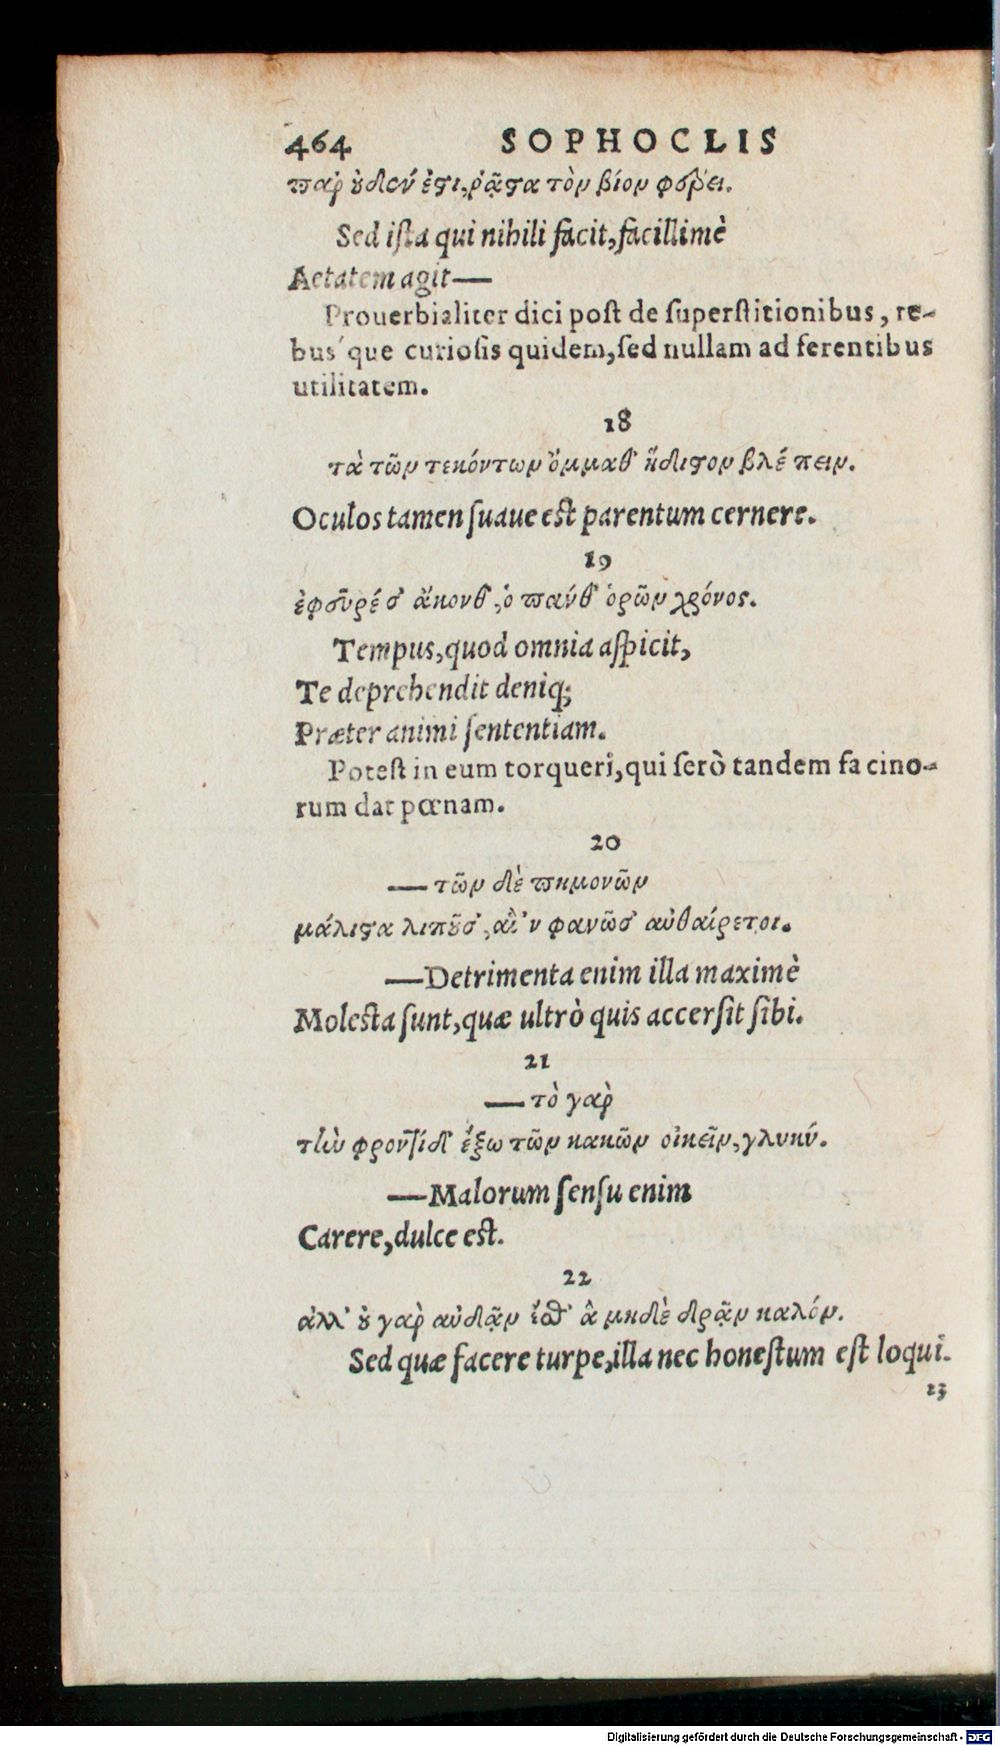 464 SOPHOCLIS
παρ' οὐδέν ἐστι, ῥᾷστα τὸν βίον φέρει.
Sed iſta qui nihili facit, facillimè
Aetatem agit—
Prouerbialiter dici poſt de ſuperſtitionibus, re-
bus´que curioſis quidem, ſed nullam ad ferentibus
utilitatem.
18
τὰ τῶν τεκόντων ὄμμαθ' ἥδιστον βλέπειν.
Oculos tamen ſuaue eſt parentum cernere.
19
ἐφεῦρέ σ' ἄκονθ', ὁ πάνθ' ὁρῶν χρόνος.
Tempus, quod omnia aſpicit,
Te deprehendit deniq;
Præter animi ſententiam.
Poteſt in eum torqueri, qui ſerò tandem facino-
rum dat pœnam.
20
—τῶν δὲ πημονῶν
μάλιστα λιποῦσ', αἳ 'ν φανῶσ' αὐθαίρετοι.
—Detrimenta enim illa maximè
Moleſta ſunt, quæ ultrò quis accerſit ſibi.
21
—τὸ γὰρ
τὴν φροντίδ' ἔξω τῶν κακῶν οἰκεῖν, γλυκύ.
—Malorum ſenſu enim
Carere, dulce eſt.
22
ἀλλ' οὐ γὰρ αὐδᾷν ἔσθ' ἃ μηδὲ δρᾷν καλόν.
Sed quæ facere turpe, illa nec honeſtum eſt loqui.
23
Digitalisierung gefördert durch die Deutsche Forschungsgemeinschaft - DFG